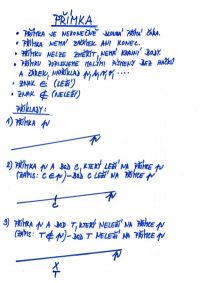 PŘÍMKA
• PŘÍMKA JE NEKONEČNĚ DLOUHÁ PŘÍMÁ ČÁRA.
• PŘÍMKA NEMÁ ZAČÁTEK ANI KONEC.
• PŘÍMKU NELZE ZMĚŘIT, NEMÁ KRAJNÍ BODY.
• PŘÍMKU POPISUJEME MALÝM PÍSMENY BEZ HÁČKŮ
A ČÁREK, NAPŘÍKLAD
• ZNAK ∈ (LEŽÍ)
• ZNAK ∉ (NELEŽÍ)
PŘÍKLADY:
1) PŘÍMKA p
p
2) PŘÍMKA p A BOD C, KTERÝ LEŽÍ NA PŘÍMCE p
(ZÁPIS: C ∈ p) – BOD C LEŽÍ NA PŘÍMCE p
p
C
3) PŘÍMKA p A BOD T, KTERÝ NELEŽÍ NA PŘÍMCE p
(ZÁPIS: T ∉ p) – BOD T NELEŽÍ NA PŘÍMCE p
p
X
T